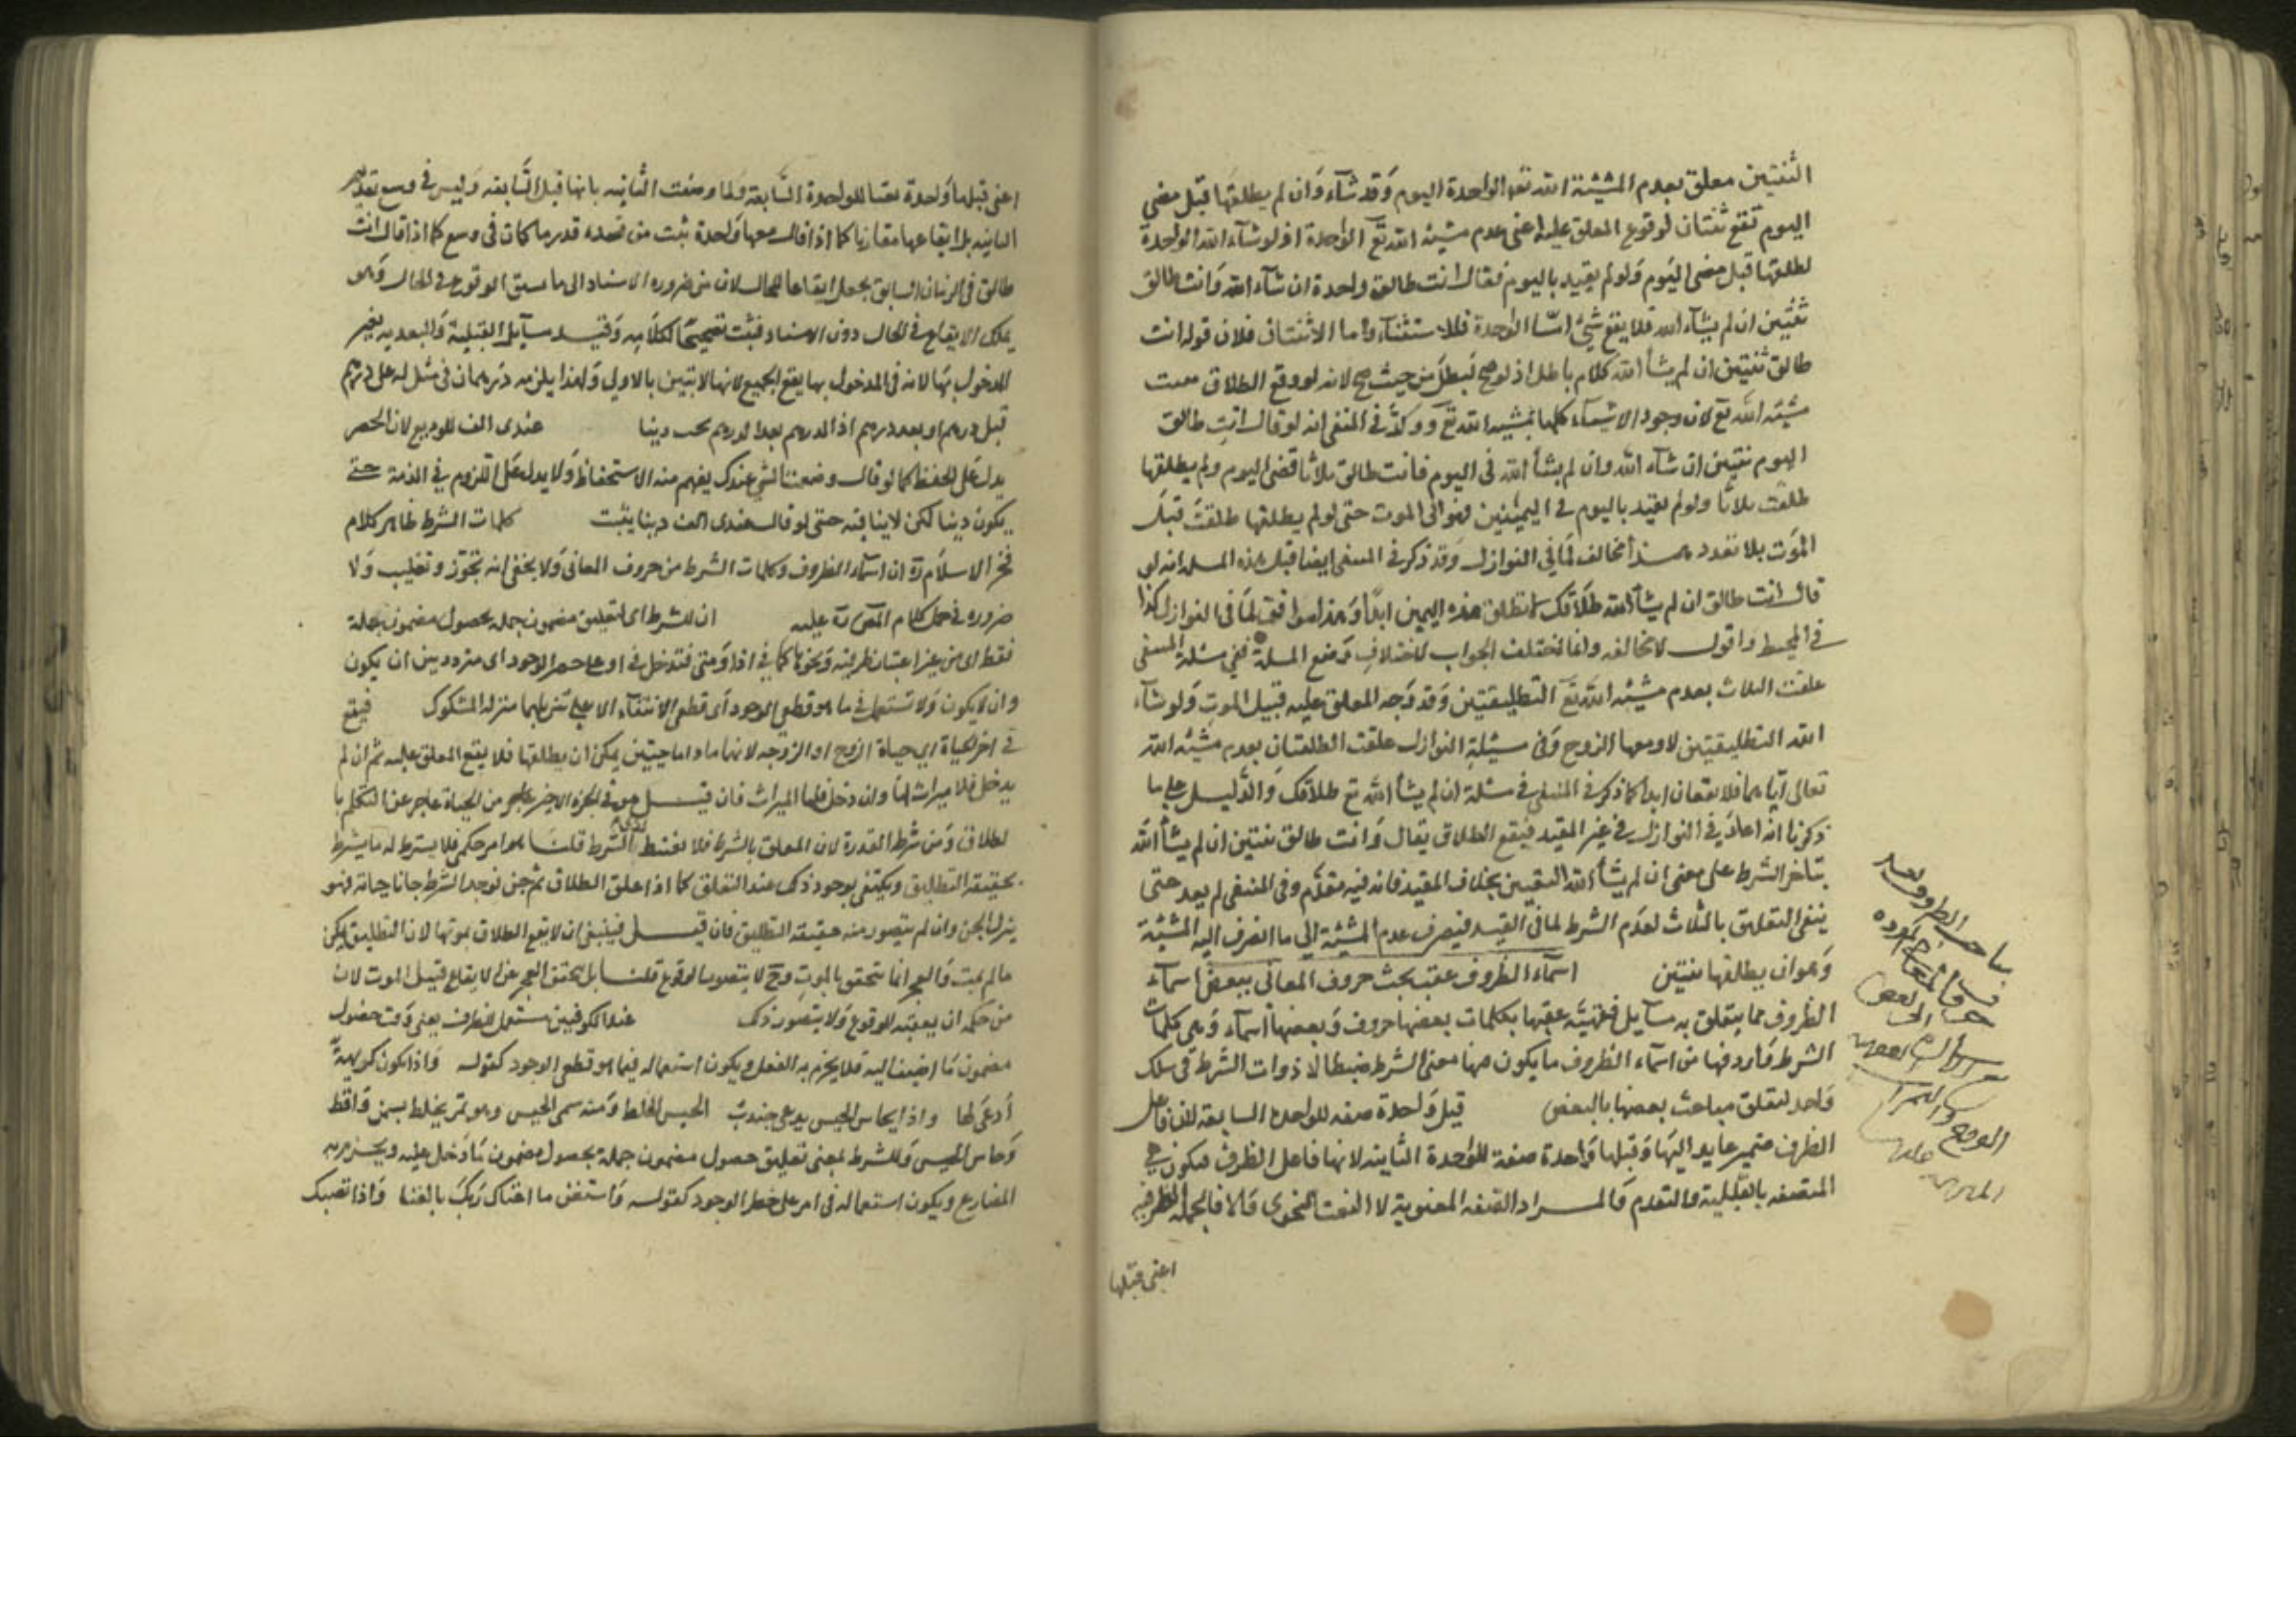 الثنتين معلق بعدم المشيئة الله تقع الواحدة اليوم وقد شآء وان لم يطلقها قبل مضي
اليوم تقع ثنتان لوقوع المعلق عليه اعنى عدم مشية الله تع الواحدة اذ لو شآء الله الواحدة
لطلقها قبل مضى اليوم ولو لم يقيد باليوم فقال انت طالق واحدة ان شآء الله وانت طالق
ثنتين ان لم يشآء الله فلا يقع شئ امّا الواحدة فللاستثنآء واما الاثنتان فلان قوله انت
طالق ثنتين ان لم يشأ الله كلام باطل اذ لو صح لبطل من حيث صح لانه لو وقع الطلاق
مشية الله تع لان وجود الاشيآء كلها بمشية الله تع وذكر فى المنتقى انه لو قال انت طالق
اليوم ثنتين ان شآء الله وان لم يشأ الله فى اليوم فانت طالق ثلاثا فمضى اليوم ولم يطلقها
طلقت ثلاثا ولو لم يقيد باليوم فى اليمينين فهو الى الموت حتى لو لم يطلقها طلقت قبل
الموت بلا هذا مخالف لما فى النوازل وقد ذكر فى المنتقى ايضا قبل هذه المسله انه لو
قال انت طالق ان لم يشأ الله طلاقك لا تطلق بهذه اليمين ابدًا وهذا موافق لما فى النوازل كذا
فى المحيط واقول لا مخالفه وانما اختلف الجواب لاختلاف وضع المسلة ففى مسئلة المنتقى
علقت الثلاث بعدم مشية الله تع التطليقتين وقد وجد المعلق عليه قبيل الموت ولو شآء
الله التطليقتين لاوقعها الزوج وفى مسئلة النوازل علقت الطلقتان بعدم مشية الله
تعالى اياهما فلا يقعان ابدا كما ذكر فى المنتقى فى مسئلة ان لم يشأ الله تع طلاقك والدليل على ما
ذكرنا انه اعاد فى النوازل فى غير المقيد فيقع الطلاق يقال وانت طالق ثنتين ان لم يشأ الله
بتاخر الشرط على معنى ان لم يشأ الله التعيين بخلاف المقيد فانه فيه مقدّم وفى المنتقى لم يعد حتى
ينفى التعليق بالثلاث لعدم الشرط لما فى القيد فينصرف عدم المشية الى ما انصرف اليه المشية
وهو ان يطلقها ثنتين اسمآء الظروف عقب بحث حروف المعانى ببعض اسمآء
الظروف مما يتعلق به مسآيل فقهية عقبها بكلمات بعضها حروف وبعضها اسمآء وهى كلمات
الشرط فاردفها من اسمآء الظروف ما يكون فيها معنى الشرط ضبطا لاذوات الشرط فى سلك
واحد لتعلق مباحث بعضها بالبعض قبل واحدة صفه للواحدة السابقة لان فاعل
الظرف ضمير عايد اليها وقبلها واحدة صفة للواحدة الثانية لانها فاعل الظرف فيكون هى
المتصفه بالقبلية والتقدم والمراد الصفه المعنوية لا النعت النحوى والا فالجملة الظرفيه
اعنى قبلها
اعنى قبلها واحدة نعتا للواحدة السّابقة ولما وصفت الثانيه بانها قبل السّابقه وليس فى وسعه تقديم
الثانيه بل ايقاعها مقارنا كما اذا قال معها واحدة ثبت من قصده قدر ما كان فى وسعه كما اذا قال انت
طالق فى الزمان السابق يجعل ايقاعا للحال لان من ضروره الاسناد الى ما سبق الوقوع فى الحال وهو
يملك الايقاع فى الحال دون الاسناد فثبت تصحيحًا لكلامه وقيد مسآيل القبلية والبعديه بغير
المدخول بها لانه فى المدخول بها يقع الجميع لانها لا تبين بالاولى ولهذا يلزمه درهمان فى مثل له على درهم
قبل درهم او بعد درهم اذ الدرهم بعد الدرهم يجب دينا عندى الف للوديع لان الحضر
يدل على الحفظ كما لو قال وضعت الشئ عندك يفهم منه الاستحفاظ ولا يدل على اللزوم فى الذمة حتى
يكون دينا لكن لا ينافيه حتى لو قال عندى الف دينا يثبت كلمات الشرط ظاهر كلام
فخر الاسلام ره ان اسمآء الظروف وكلمات الشرط من حروف المعانى ولا يخفى انه تجوّز وتغليب ولا
ضروره فى حمل كلام المص عليه ان للشرط اى لتعليق مضمون جمله بحصول مضمون جملة
فقط اى من غير اعتبار ظرفية ونحوها كما فى اذا ومتى فتدخل فى امر على خطر الوجود اى متردد بين ان يكون
وان لا يكون ولا تستعمل فى ما هو قطعى الوجود اى قطعى الانتفآء الا على تنزيلهما منزلة المشكوك فيقع
فى اخر الحياة اى حياة الزوج او الزوجه لانها ما داما حيين يمكن ان يطلقها فلا يقع المعلق عليه ثم ان لم
يدخل فلا ميراث لها وان دخل فلها الميراث فان قيل هو فى الجزء الاخير من الحياة عاجز عن التكلم با
لطلاق ومن شرطه القدرة لان المعلق بالشرط الشرط قلنا هو امر حكمى فلا يشترط له ما يشترط
بحقيقة التطليق ويكتفى بوجود ذلك عند التعليق كما اذا علق الطلاق ثم جن فوجد الشرط فهو
ينزل الجزاء وان لم يتصور منه حقيقة التطليق فان قيل فينبغى ان لا يقع الطلاق بموتها لان التطليق يمكن
ما لم يمت والعجز انما يتحقق بالموت وح لا يتصور الوقوع قلنا بل تحقق العجز عن الايقاع قبيل الموت لان
من حكمه ان يعقبه الوقوع ولا يتصور ذلك عند الكوفيين مستعمل للظرف يعنى وقت حصول
مضمون ما اضيف اليه فلا يجزم به الفعل ويكون استعماله فيما هو قطعى الوجود كقوله واذا تكون كريهةٌ
أدعى لها واذا يحاس الحيس يدعى جندبُ الحيس الخلط ومنه سمى الحيس وهو تمر يخلط بسمن واقط
وحاس الحيس وللشرط بمعنى تعليق حصول مضمون جملة بحصول مضمون ما دخل عليه ويجزم به
المضارع ويكون استعماله فى امر على خطر الوجود كقوله واستغن ما اغناك ربك بالغنا واذا تصبك